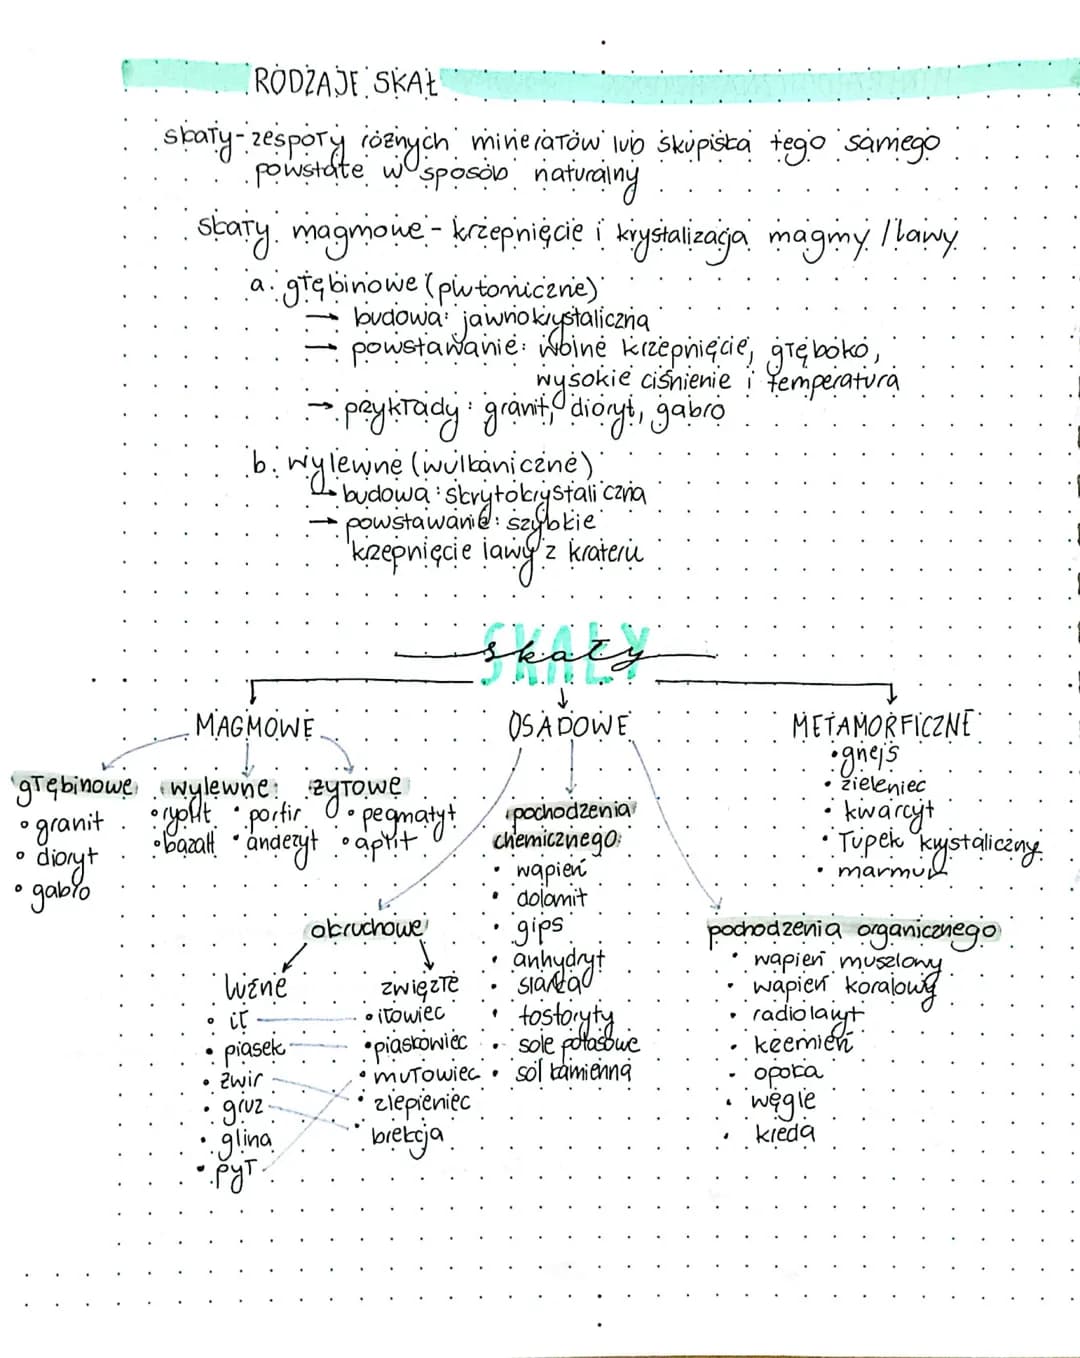 RODZAJE SKAŁ
skały - zespoły różnych minerałów lub skupiska tego samego
powstałe w sposób naturalny
skały magmowe - krzepnięcie i krystalizacja magmy / lawy
a. głębinowe (plutoniczne)
→ budowa: jawnokrystaliczna
→ powstawanie: wolne krzepnięcie, głęboko,
wysokie ciśnienie i temperatura
→ przykłady: granit, dioryt, gabro
b. wylewne (wulkaniczne)
→ budowa: skrytokrystaliczna
→ powstawanie: szybkie
krzepnięcie lawy z krateru
SKAŁY
skały
MAGMOWE
głębinowe
• granit
• dioryt
• gabro
wylewne
• ryolit • porfir
• bazalt • andezyt
żyłowe
• pegmatyt
• aplit
OSADOWE
okruchowe
luźne
• ił
• piasek
• żwir
• gruz
• glina
• pył
zwięzłe
• iłowiec
• piaskowiec
• mułowiec
• zlepieniec
• brekcja
pochodzenia
chemicznego
• wapień
• dolomit
• gips
• anhydryt
• siarka
• fosforyty
• sole potasowe
• sól kamienna
pochodzenia organicznego
• wapień muszlowy
• wapień koralowy
• radiolaryt
• krzemień
• opoka
• węgle
• kreda
METAMORFICZNE
• gnejs
• zieleniec
• kwarcyt
• łupek krystaliczny
• marmur